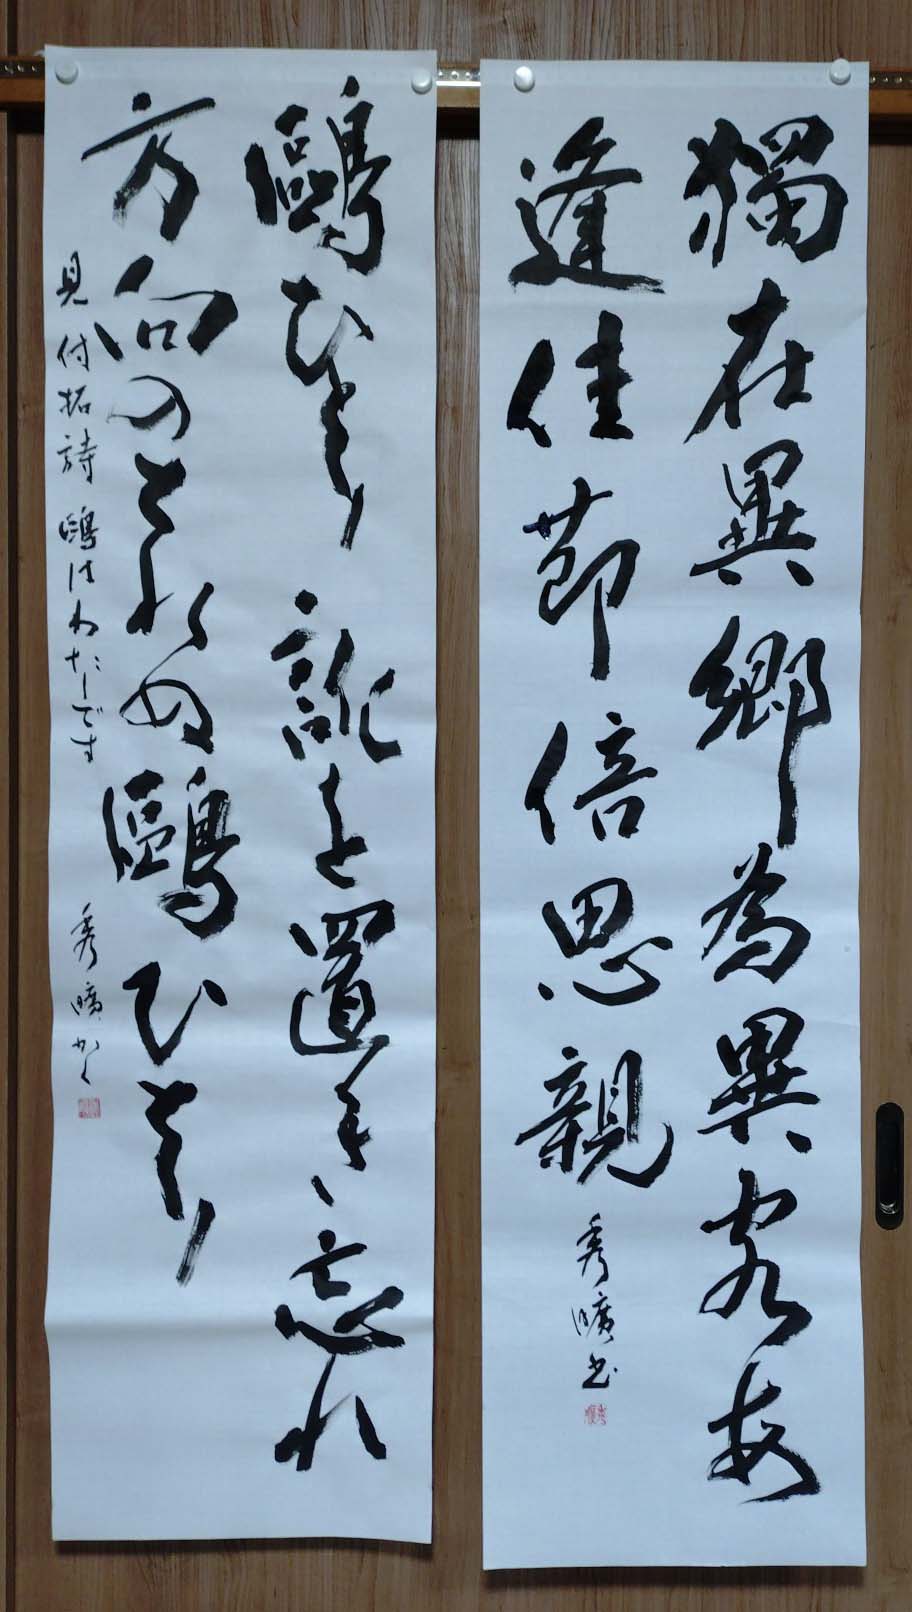 獨在異鄉為異客每
逢佳節倍思親
秀曠書
鷗ひとり 訛を置き忘れ
方向のとれぬ鷗ひとり
見付拓詩 鷗はわたしです 秀曠かく